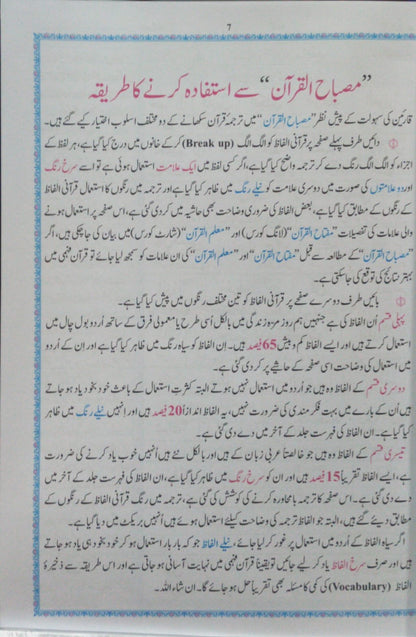 7
”مصباح القرآن“ سے استفادہ کرنے کا طریقہ
قارئین کی سہولت کے پیش نظر ”مصباح القرآن“ میں ترجمۂ قرآن سکھانے کے دو مختلف اسلوب اختیار کیے گئے ہیں۔
دائیں طرف پہلے صفحے پر قرآنی الفاظ کو الگ الگ (Break up) کر کے خانوں میں درج کیا گیا ہے، ہر لفظ کے
اجزاء کو الگ الگ رنگ دے کر ترجمہ واضح کیا گیا ہے، اگر کسی لفظ میں ایک علامت استعمال ہوئی ہے تو اسے سرخ رنگ
اور دو علامتوں کی صورت میں دوسری علامت کو نیلے رنگ میں ظاہر کیا گیا ہے اور ترجمہ میں رنگوں کا استعمال قرآنی الفاظ
کے رنگوں کے مطابق کیا گیا ہے، بعض الفاظ کی ضروری وضاحت بھی حاشیہ میں کر دی گئی ہے، اس صفحہ پر استعمال ہونے
والی علامات کی تفصیلات ”مفتاح القرآن“ (لانگ کورس) اور ”معلم القرآن“ (شارٹ کورس) میں بیان کی جا چکی ہیں، اگر
”مصباح القرآن“ کے مطالعہ سے قبل ”مفتاح القرآن“ اور ”معلم القرآن“ کی ان علامات کو سمجھ لیا جائے تو قرآن فہمی میں
بہتر نتائج کی توقع کی جا سکتی ہے۔
بائیں طرف دوسرے صفحے پر قرآنی الفاظ کو تین مختلف رنگوں میں پیش کیا گیا ہے۔
پہلی قسم اُن الفاظ کی ہے جنہیں ہم روز مرہ زندگی میں بالکل اُسی طرح یا معمولی فرق کے ساتھ اُردو بول چال میں
استعمال کرتے ہیں اور ایسے الفاظ کم و بیش 65 فیصد ہیں۔ اِن الفاظ کو سیاہ رنگ میں ظاہر کیا گیا ہے اور ان کے اُردو
میں استعمال کی وضاحت اسی صفحہ کے حاشیے پر کر دی گئی ہے۔
دوسری قسم کے الفاظ وہ ہیں جو اُردو میں استعمال نہیں ہوتے البتہ کثرتِ استعمال کے باعث خود بخود یاد ہو جاتے
ہیں اُن کے بارے میں بہت فکر مندی کی ضرورت نہیں، یہ الفاظ اندازاً 20 فیصد ہیں اور اِنہیں نیلے رنگ میں ظاہر
کیا گیا ہے۔ ان الفاظ کی فہرست جلد کے آخر میں دے دی گئی ہے۔
تیسری قسم کے الفاظ وہ ہیں جو خالصتاً عربی زبان کے ہیں اور بالکل نئے ہیں اُنہیں خوب یاد کرنے کی ضرورت
ہے، ایسے الفاظ تقریباً 15 فیصد ہیں اور ان کو سرخ رنگ میں ظاہر کیا گیا ہے، ان الفاظ کی فہرست بھی جلد کے آخر میں
دے دی گئی ہے۔ اس صفحے کا ترجمہ با محاورہ کرنے کی کوشش کی گئی ہے، ترجمہ میں رنگ قرآنی الفاظ کے رنگوں کے
مطابق دیئے گئے ہیں، البتہ جو الفاظ ترجمہ کی وضاحت کیلئے استعمال ہوئے ہیں اُنہیں بریکٹ میں دیا گیا ہے۔
اگر سیاہ الفاظ کے اُردو میں استعمال پر غور کر لیا جائے، نیلے الفاظ جو کہ بار بار استعمال ہو کر خود بخود ہی یاد ہو جاتے
ہیں اور صرف سرخ الفاظ یاد کر لیے جائیں تو یقیناً قرآن فہمی میں نہایت آسانی ہو جاتی ہے اور اس طریقہ سے ذخیرۂ
الفاظ (Vocabulary) کی کمی کا مسئلہ بھی تقریباً حل ہو جائے گا۔ ان شاء اللہ۔